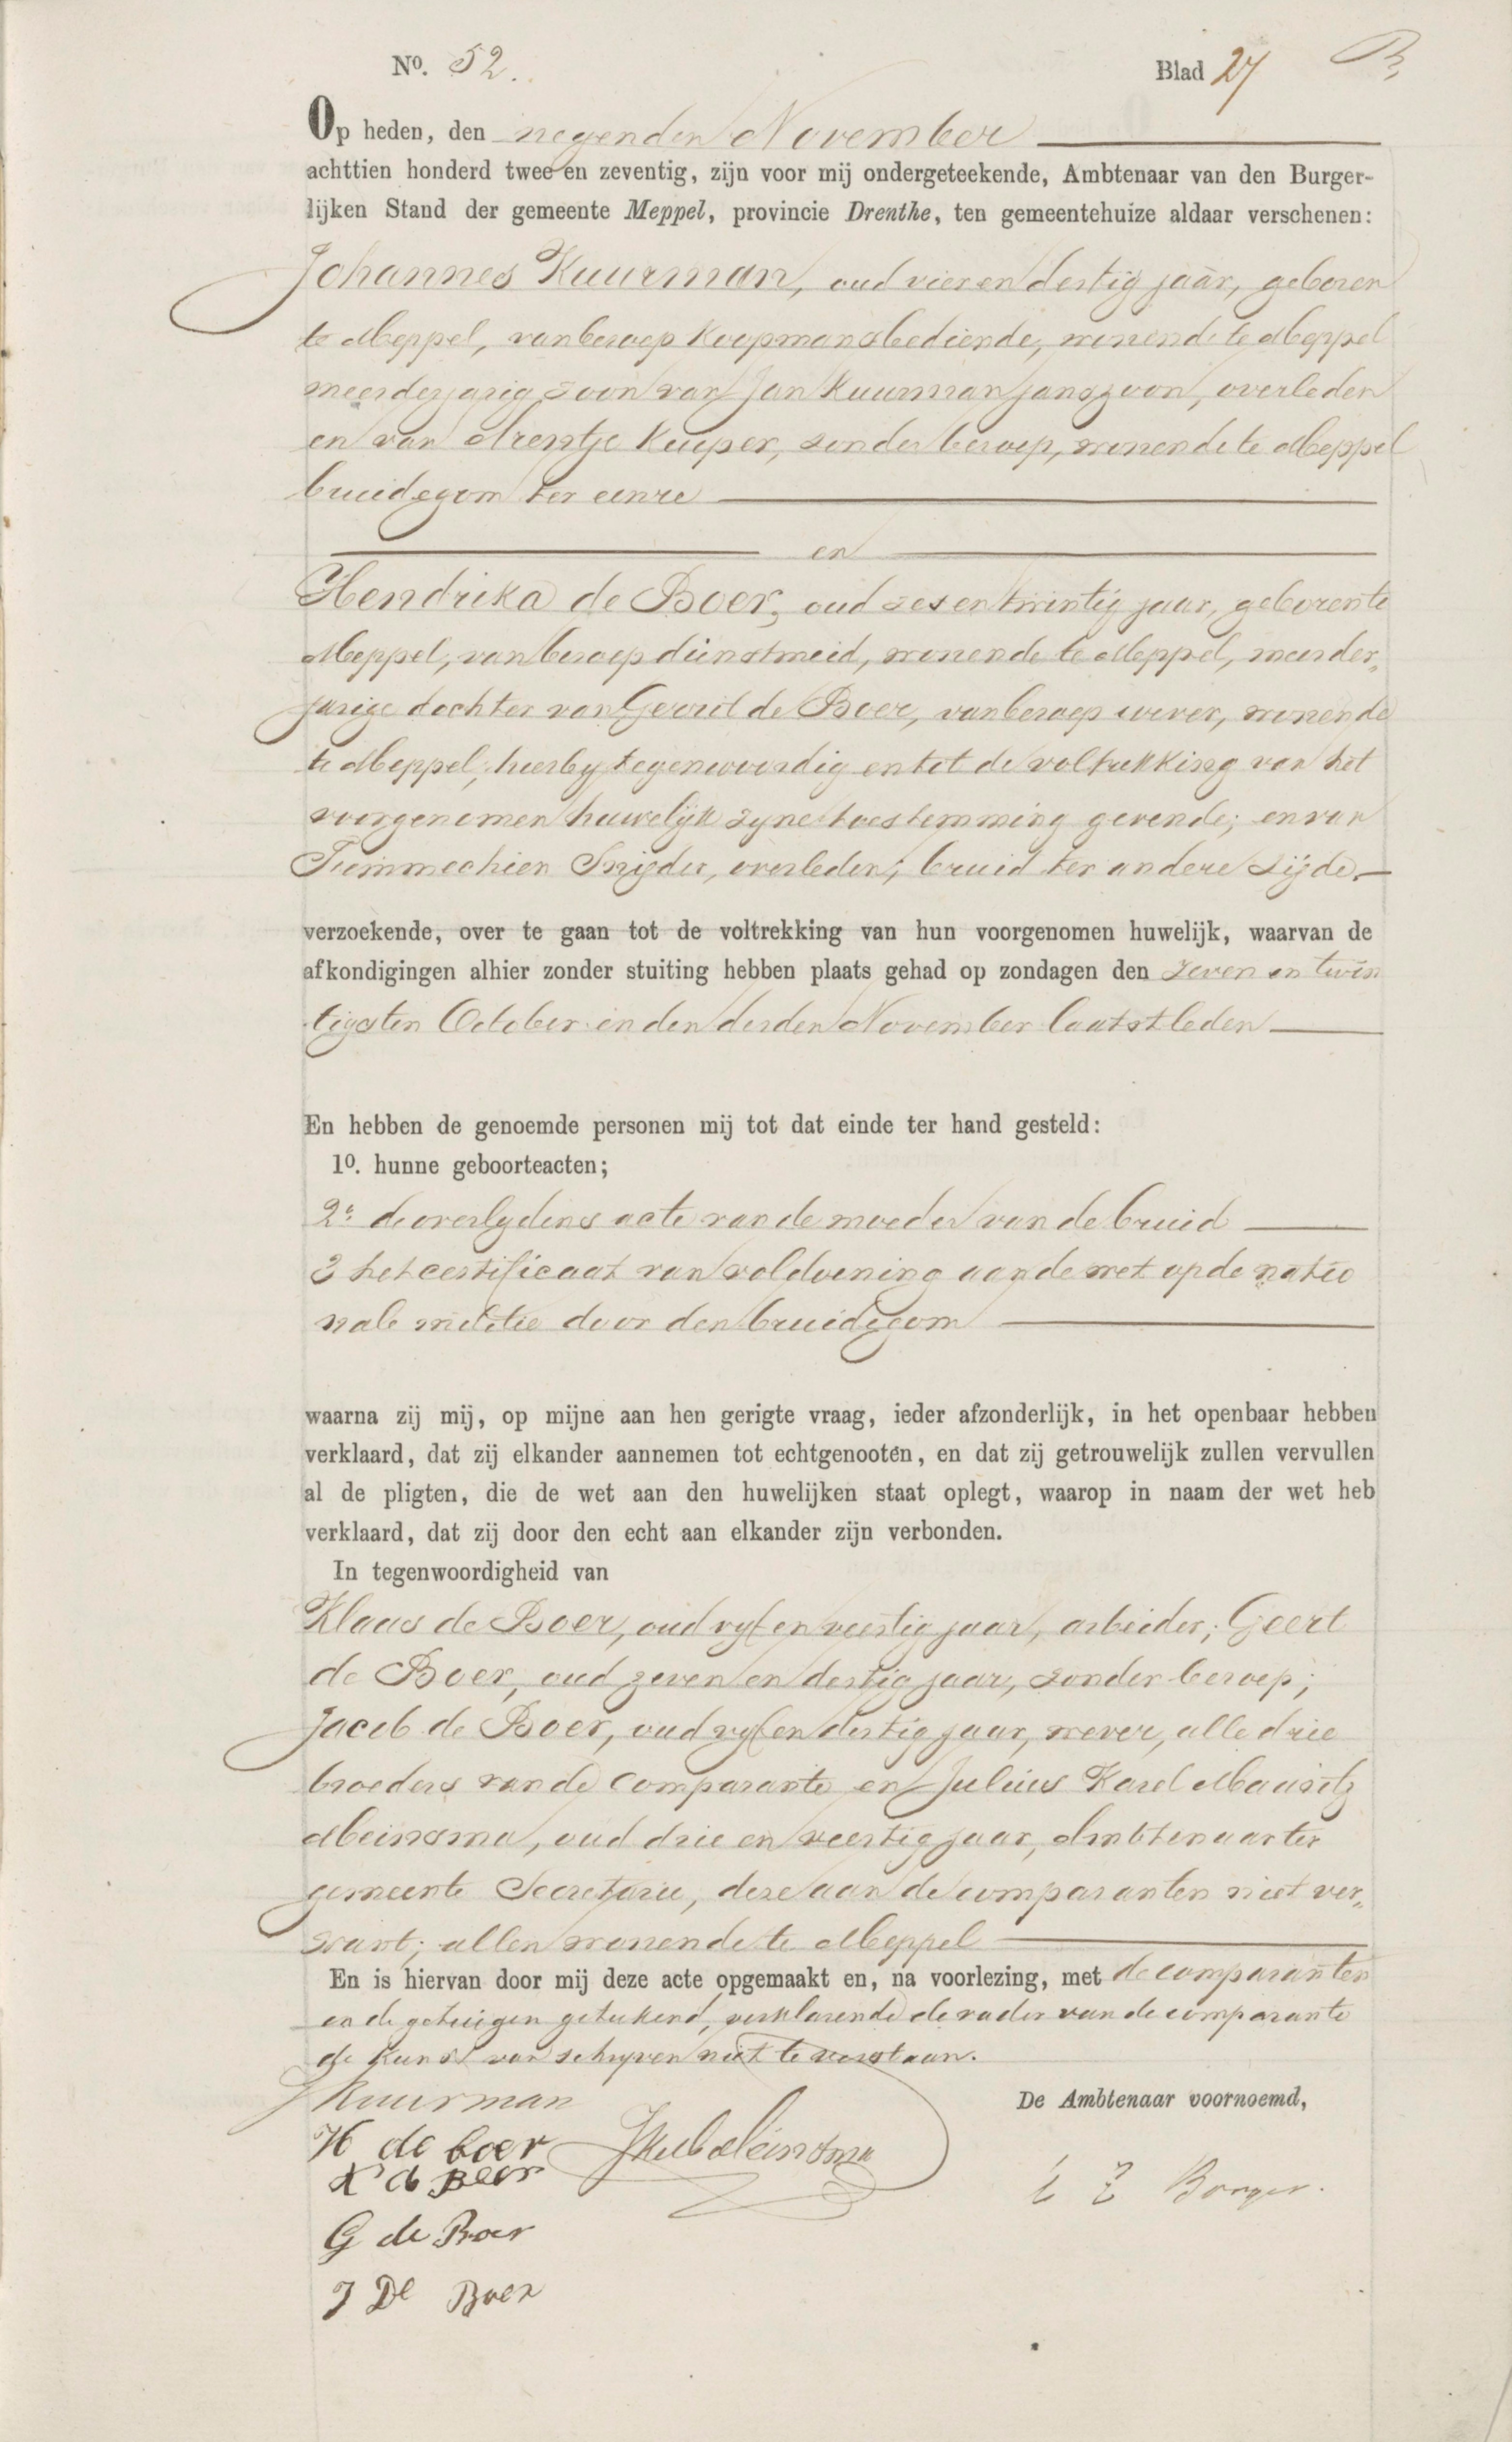 No. 52.
Blad 27
Op heden, den negenden November
achttien honderd twee en zeventig, zijn voor mij ondergeteekende, Ambtenaar van den Burger-
lijken Stand der gemeente Meppel, provincie Drenthe, ten gemeentehuize aldaar verschenen:
Johannes Kuurman, oud vier en dertig jaar, geboren
te Meppel, van beroep koopmansbediende, wonende te Meppel
meerderjarig zoon van Jan Kuurman janszoon, overleden
en van Arentje Kuiper, zonder beroep, wonende te Meppel
bruidegom ter eenre
en
Hendrika de Boer, oud zes en twintig jaar, geboren te
Meppel, van beroep dienstmeid, wonende te Meppel, meerder„
jarige dochter van Geert de Boer, van beroep wever, wonende
te Meppel, hierby tegenwoordig en tot de voltrekking van het
voorgenomen huwelijk zyne toestemming gevende; en van
Femmechien Snijder, overleden; bruid ter andere zijde.
verzoekende, over te gaan tot de voltrekking van hun voorgenomen huwelijk, waarvan de
afkondigingen alhier zonder stuiting hebben plaats gehad op zondagen den zeven en twin
tigsten October en den derden November laatstleden
En hebben de genoemde personen mij tot dat einde ter hand gesteld:
1o. hunne geboorteacten;
2o. de overlydens acte van de moeder van de bruid
3 het certificaat van voldoening aan de wet op de natio
nale militie door den bruidegom
waarna zij mij, op mijne aan hen gerigte vraag, ieder afzonderlijk, in het openbaar hebben
verklaard, dat zij elkander aannemen tot echtgenooten, en dat zij getrouwelijk zullen vervullen
al de pligten, die de wet aan den huwelijken staat oplegt, waarop in naam der wet heb
verklaard, dat zij door den echt aan elkander zijn verbonden.
In tegenwoordigheid van
Klaas de Boer, oud vyf en veertig jaar, arbeider; Geert
de Boer, oud zeven en dertig jaar, zonder beroep;
Jacob de Boer, oud vyf en dertig jaar, wever, alle drie
broeders van de comparante en Julius Karel Mauritz
Meinsma, oud drie en veertig jaar, Ambtenaar ter
gemeente Secretarie, deze aan de comparanten niet ver„
want; allen wonende te Meppel
En is hiervan door mij deze acte opgemaakt en, na voorlezing, met de comparanten
en de getuigen geteekend, verklarende de vader van de comparante
de kunst van schryven niet te verstaan.
J Kuurman
De Ambtenaar voornoemd,
H de boer
JKMMeinsma
K d Boer
Borger.
G de Boer
J De Boer